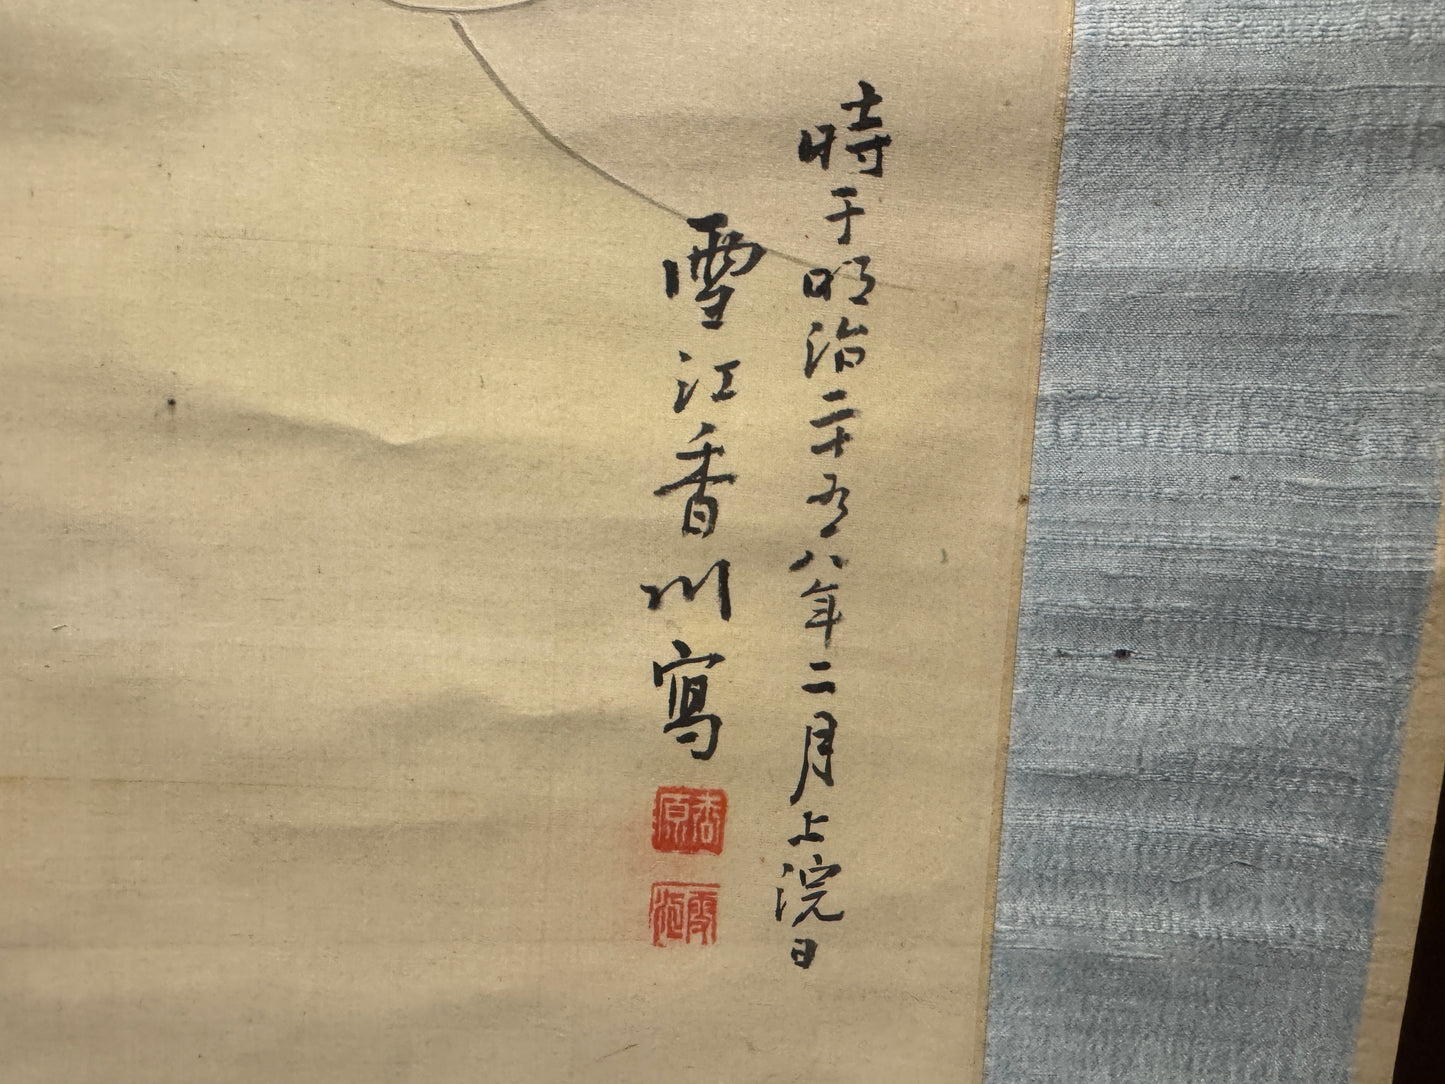 時于明治二十有八年二月上浣日
雪江香川寫
香原